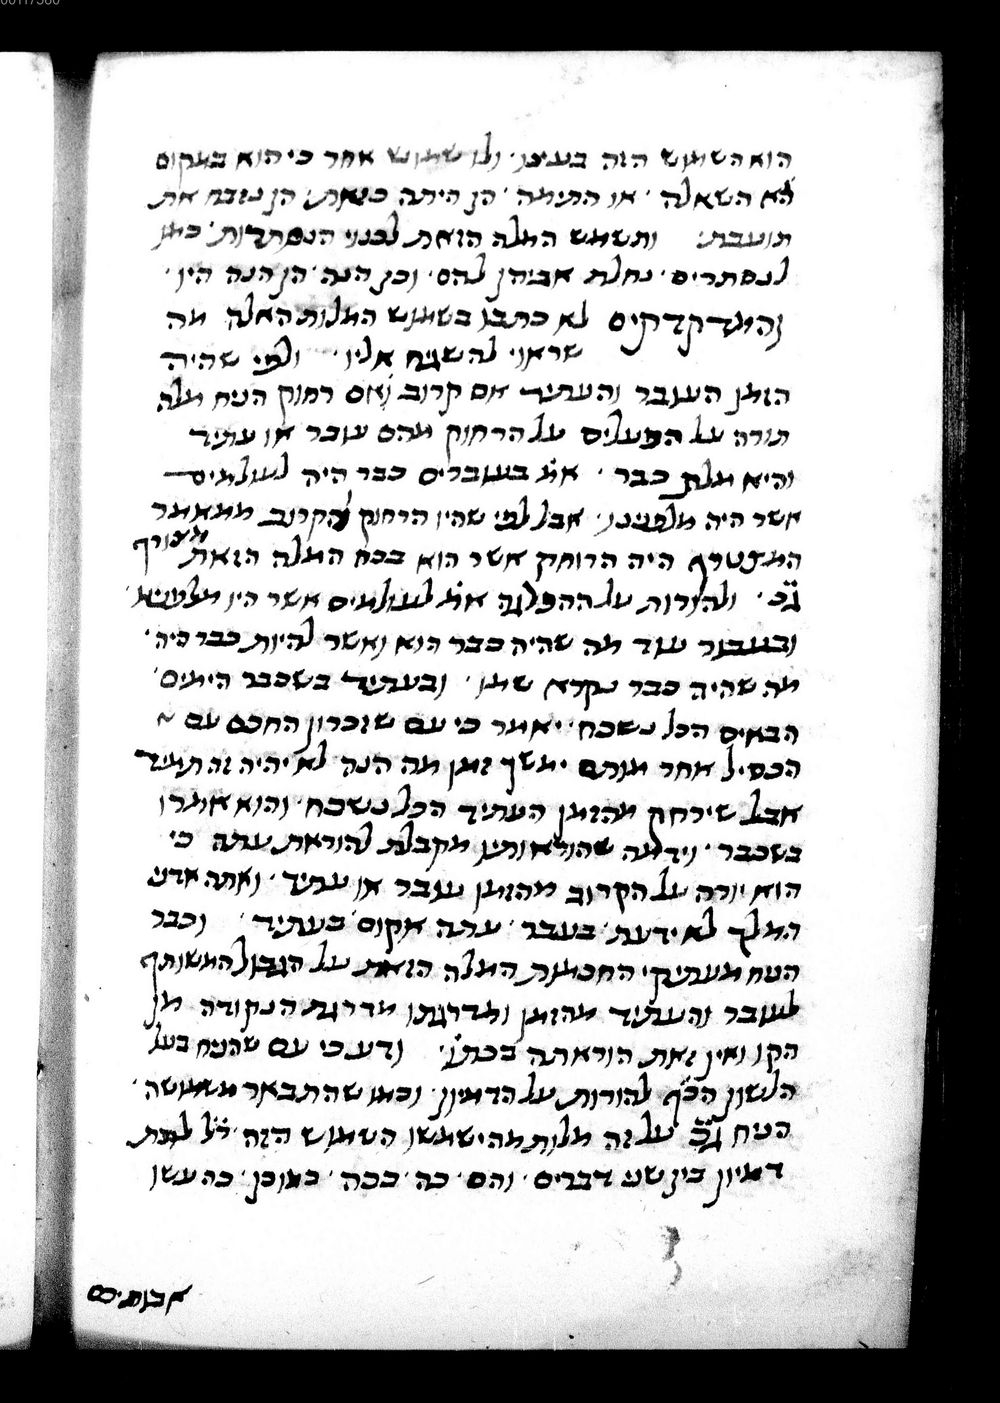 הוא השמוש הזה בעינו · ולו שמוש אחר כי הוא במקום
לא השאלה · או התימה · הן היתה כזאת · הן נזבח את
תועבת · ותשמש המלה הזאת לכנוי הנסתרות · כמו
לנסתרים · נחלת אביהן להם · וכן הנה · הן הנה היו ·
והמדקדקים לא כתבו בשמוש המלות האלה מה
שראוי להשגיח אליו · ולפי שהיה
הזמן העובר והעתיד אם קרוב ואם רחוק הניח מלה
תורה על הפעלים על הרחוק מהם עובר או עתיד
והיא מלת כבר · אמ׳ בעוברים כבר היה לעולמים
אשר היה מלפנינו · אבל לפי שהיו הרחוק והקרוב ממאמר
המצטרף היה הרוחק אשר הוא בכח המלה הזאת מצורף
ג״כ · ולהורות על ההפלגה אמ׳ לעולמים אשר היו מלפנינו ·
ובעבור עוד מה שהיה כבר הוא ואשר להיות כבר היה ·
מה שהיה כבר נקרא שמו · ובעתיד בשכבר הימים ·
הבאים הכל נשכח · יאמר כי עם שזכרון החכם עם
הכסיל אחר מותם ימשך זמן מה הנה לא יהיה זה תמיד
אבל שירחק מהזמן העתיד הכל נשכח · והוא אמרו
בשכבר · וידמה שהוראותיו מקבלת להוראת עתה כי
הוא יורה על הקרוב מהזמן עובר או עתיד · ואתה אדני
המלך לא ידעת · בעבר · עתה אקום · בעתיד · וכבר
הניח מעתיקי החכמות המלה הזאת על הגבול המשותף
לעובר והעתיד מהזמן ומדרגתו מדרגת הנקודה מן
הקו ואין זאת הוראתה בכתו׳ · ודע כי עם שהניח בעל
הלשון הכ״ף להורות על הדמיון · וכמו שהתבאר משמושה ·
הניח ג״כ על זה מלות מה ישמשו השמוש הזה · ר״ל לתת
דמיון בין שני דברים · והם · כה · ככה · כמו כן · כה עשו
אבותיכם